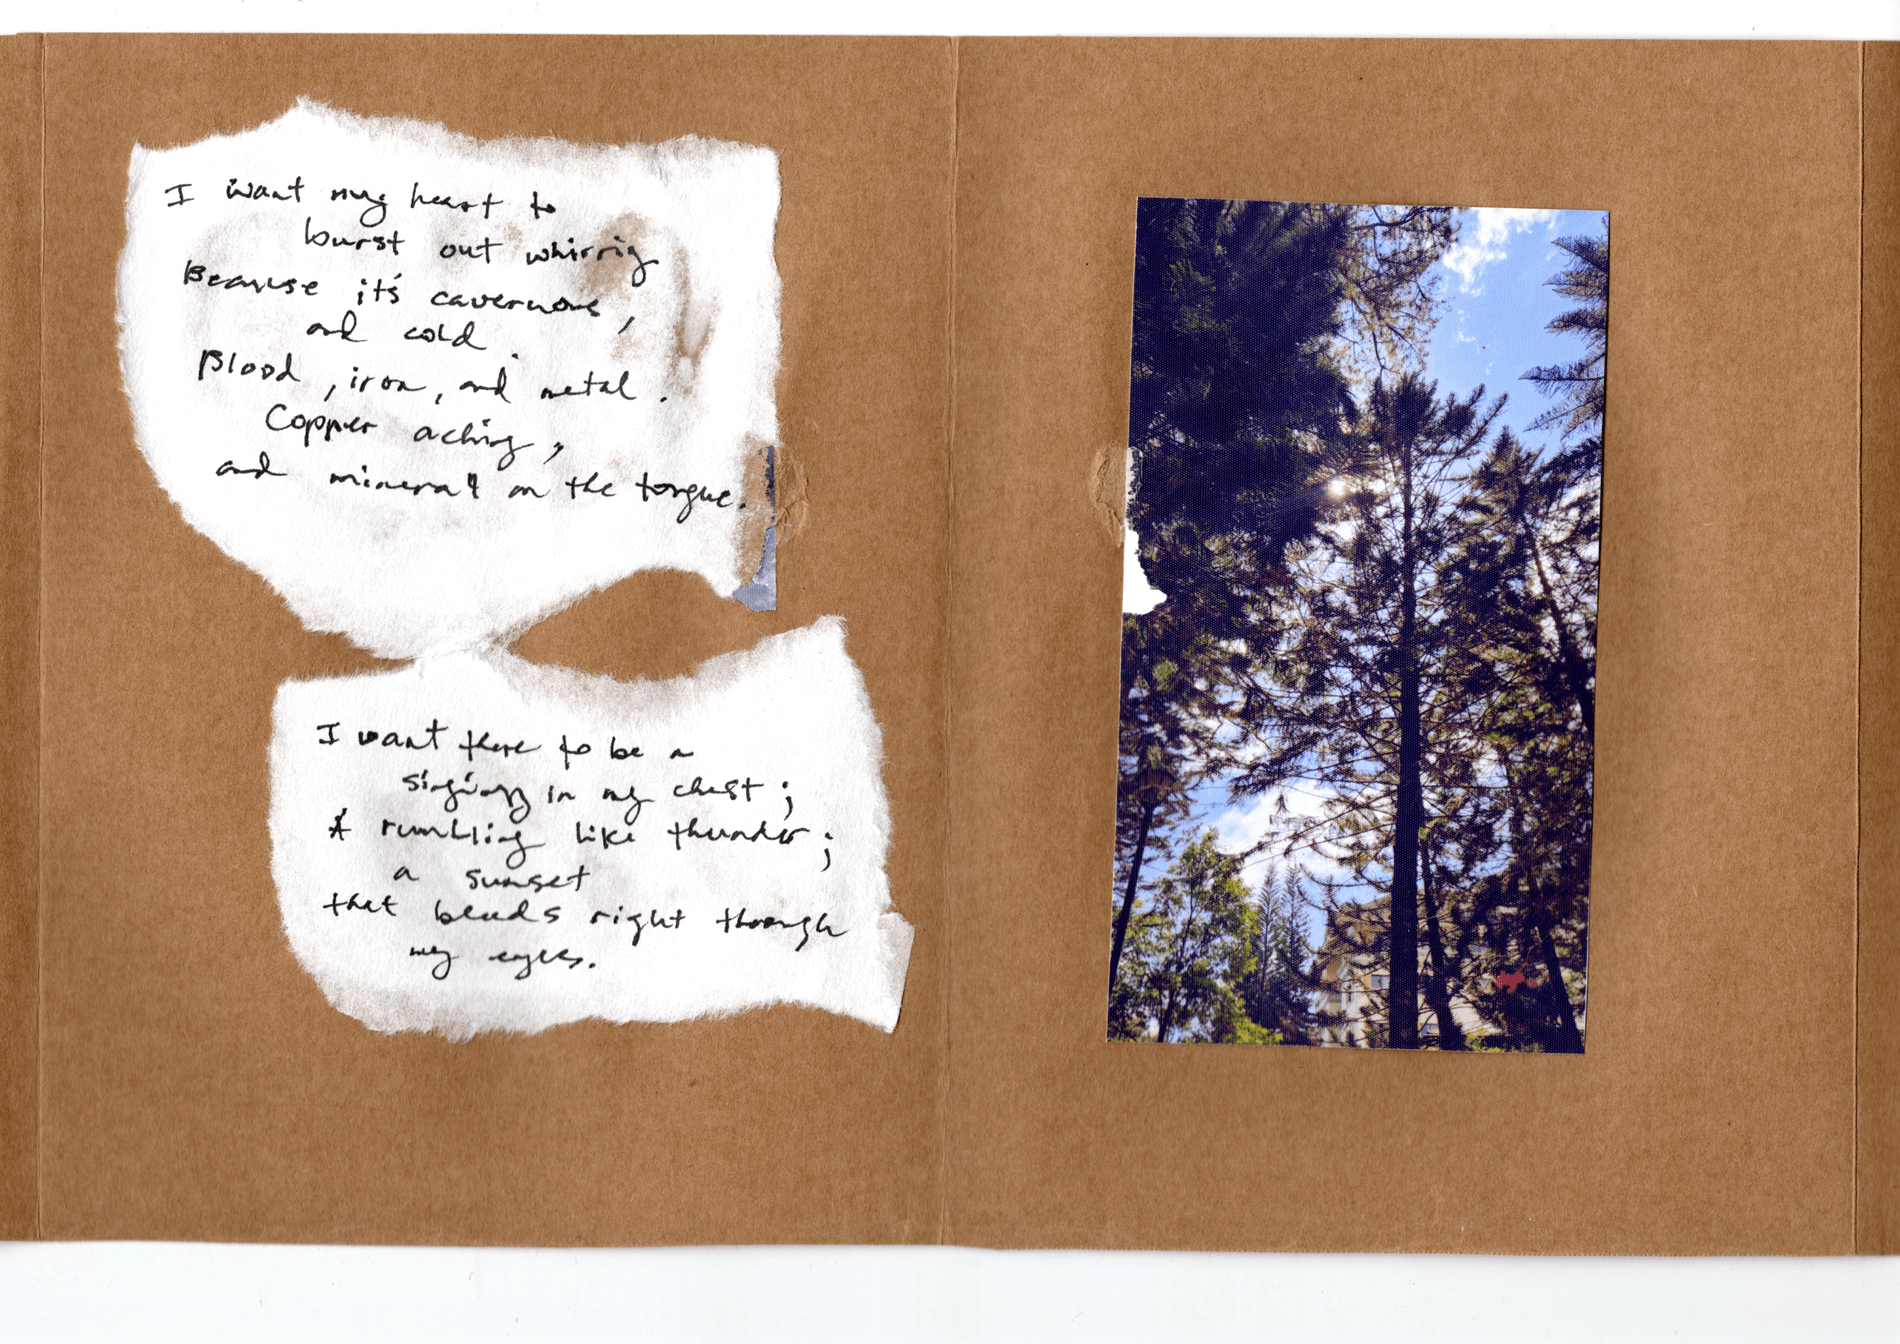 I want my heart to
burst out whirrig
Because it's cavernous,
and cold.
Blood, iron, and metal.
Copper aching,
and mineral on the tongue.
I want there to be a
singing in my chest;
A rumbling like thunder;
a sunset
that bleeds right through
my eyes.